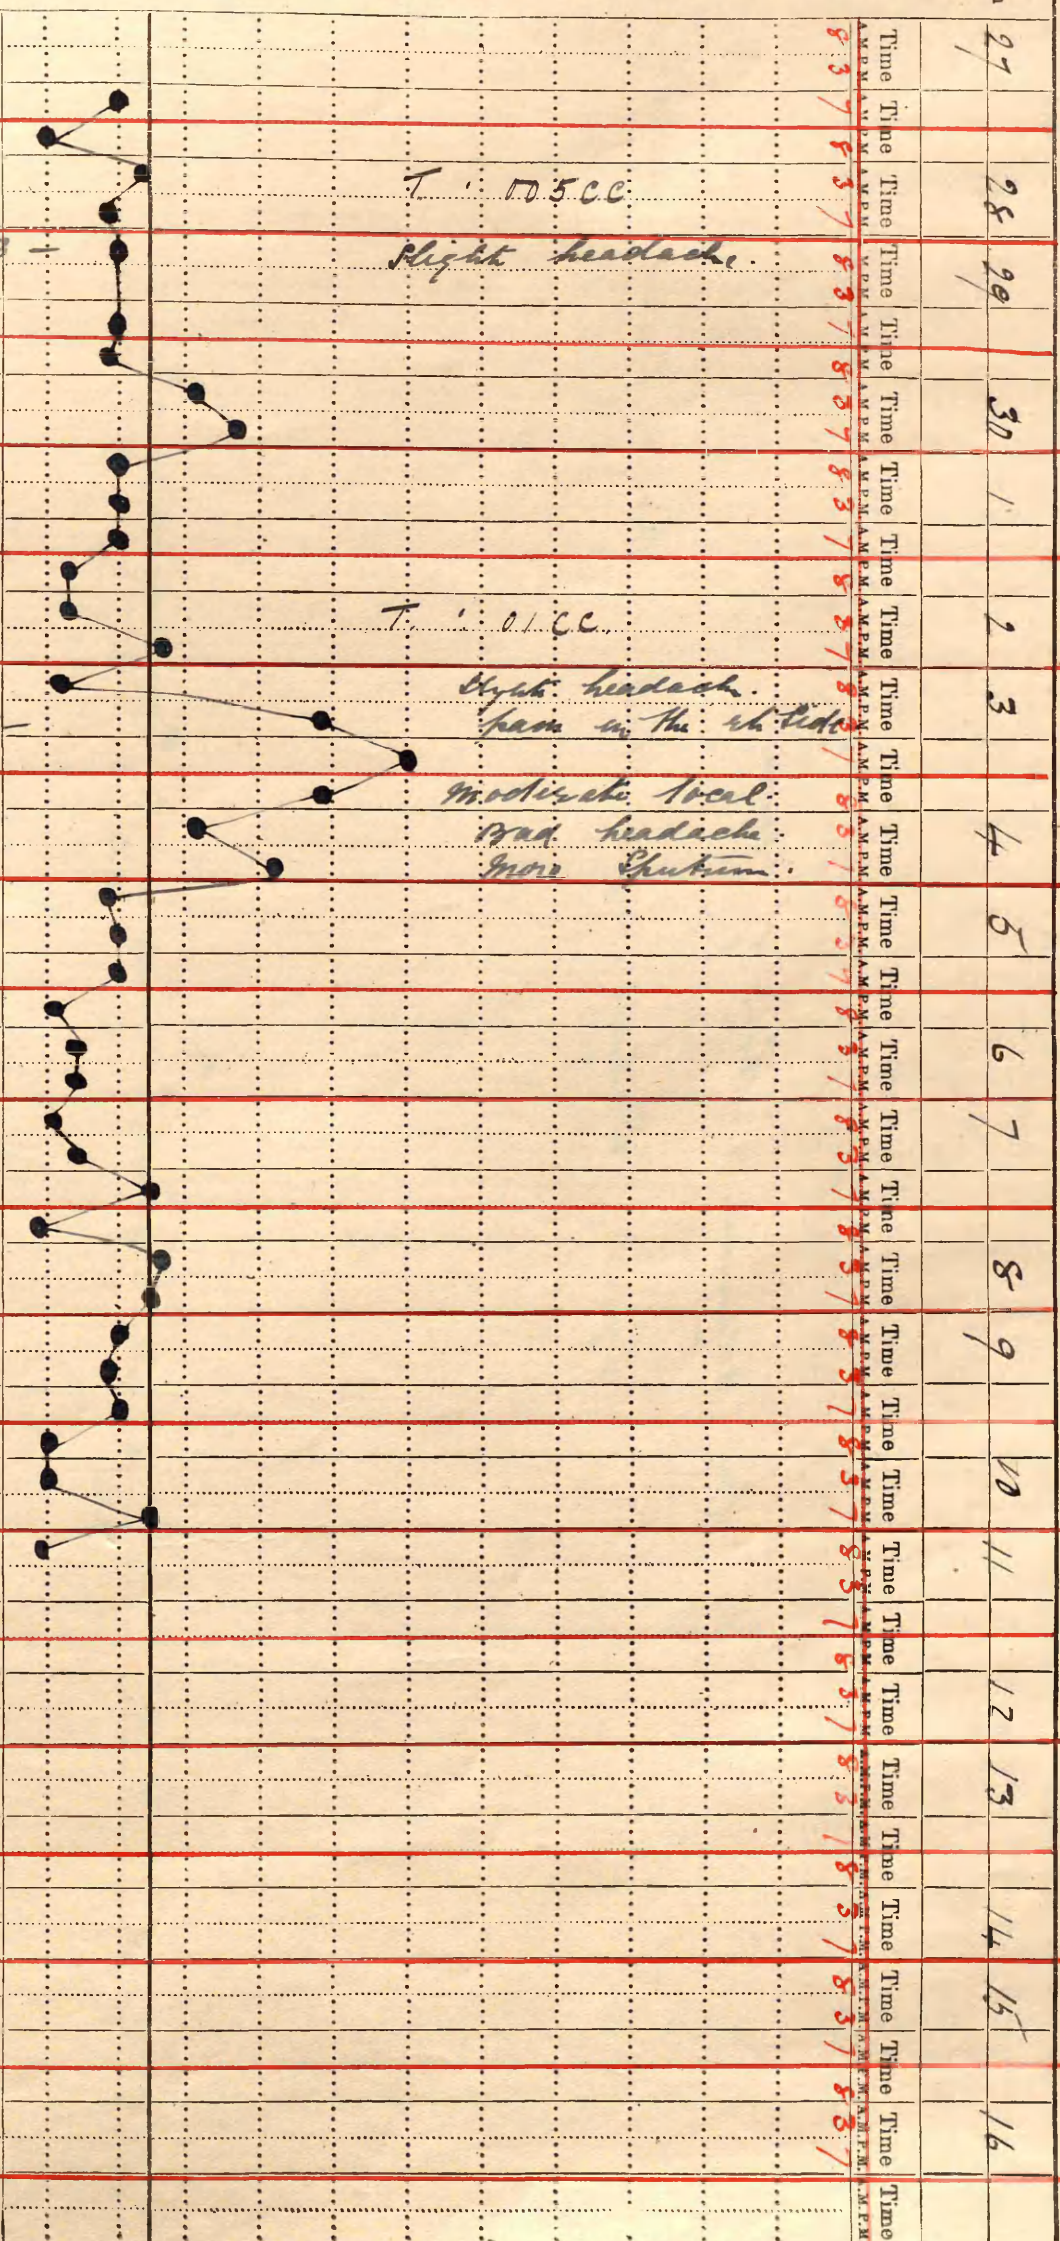 27
28
29
30
1
2
3
4
5
6
7
8
9
10
11
12
13
14
15
16
Time Time Time Time Time Time Time Time Time Time Time Time Time Time Time Time Time Time Time Time Time Time Time Time Time Time Time Time Time Time Time
A.M. P.M. A.M. P.M. A.M. P.M. A.M. P.M. A.M. P.M. A.M. P.M. A.M. P.M. A.M. P.M.
8 3 7 8 3 7 8 3 7 8 3 7 8 3 7 8 3 7 8 3 7 8 3 7 8 3 7 8 3 7 8 3 7 8 3 7 8 3 7 8 3 7 8 3 7 8 3 7 8 3 7 8 3 7 8 3 7 8 3 7
T . 005 CC
Slight headache.
T . 01 CC.
Slight headach.
pain in the rt side
Moderate local.
Bad headache.
More Sputum.